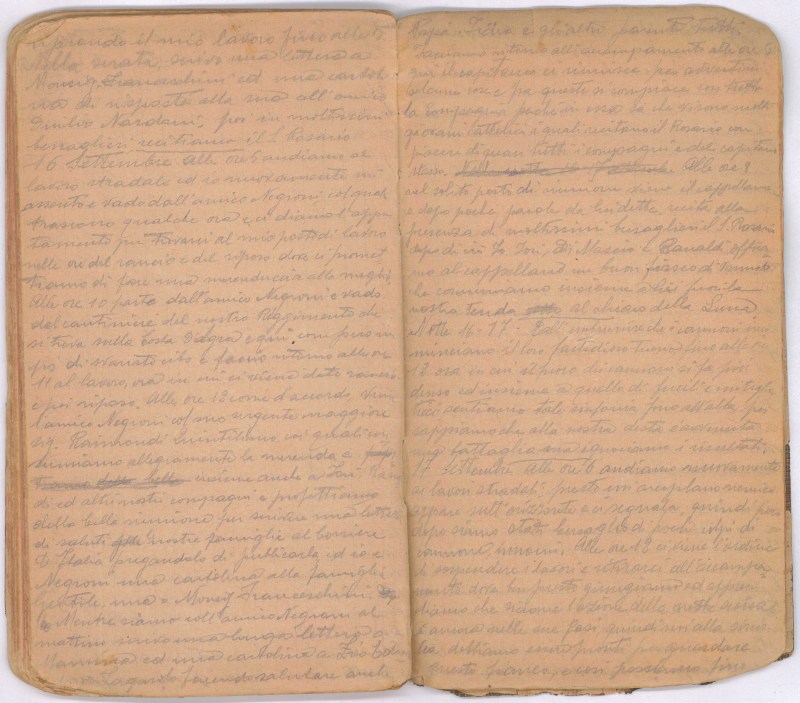 riprendo il mio lavoro fino alle 6
Nella serata, scrivo una lettera a
Monsig. Franceschini ed una cartoli
na di risposta alla sua all'amico
Emilio Nardoni, poi in moltissimi
bersaglieri recitiamo il S. Rosario
16 Settembre Alle ore 6 andiamo al
lavoro stradale ed io nuovamente mi
assento e vado dall'amico Negroni col quale
trascorro qualche ora e ci diamo l'appun
tamento per trovarci al mio posto di lavoro
nelle ore del rancio e del riposo dove ci promet
tiamo di fare una merenduccia alla meglio
Alle ore 10 parto dall'amico Negroni e vado
dal cantiniere del nostro Reggimento che
si trova sulla costa
di svariati cibi e faccio ritorno alle ore
11 al lavoro, ora in cui ci viene dato rancio
e poi riposo. Alle ore 12 come d'accordo, viene
l'amico Negroni col suo sergente maggiore
sig. Raimondi Quintiliano coi quali con
sumiamo allegramente la merenda
insieme anche a Fori
di ed altri nostri compagni e profittiamo
della bella riunione per scrivere una lettera
di saluti alle nostre famiglie al Corriere
D'Italia pregandolo di pubblicarla ed io e
Negroni una cartolina alla famiglia
Gentile, una a Monsig. Franceschini
Mentre siamo coll'amico Negroni al
mattino scrivo una lunga lettera a
Mamma ed una cartolina a Zio
facendo salutare anche
Papà, Fidia e gli altri parenti tutti.
Facciamo ritorno all'accampamento alle ore 6
qui il capitano ci riunisce per avvertirci
alcune cose e fra queste si compiace con tutta
la Compagnia perché in essa ha che vi sono molti
giovani Cattolici i quali recitano il Rosario con
piacere di quasi tutti i compagni e del capitano
stesso. Alle ore 9
nel solito posto di riunione viene il cappellano
e dopo poche parole da lui dette, recita alla
presenza di moltissimi bersaglieri il S. Rosario
dopo di ciò Io, Fori, Di Muscio e Ranaldi offria
mo al cappellano un buon fiasco di vino
che consumiamo insieme a lui fuori la
nostra tenda al chiaro della Luna.
Notte 16 - 17 - i cannoni inco
minciano il loro fastidioso tuono fino alle ore
12 ora in cui il fuoco di cannoni si fa più
denso ed insieme a quello di fucili e mitraglia
trici sentiamo tale sinfonia fino all'alba, poi
sappiamo che alla nostra destra è avvenuta
una battaglia ma ignoriamo i risultati.
17 Settembre Alle ore 6 andiamo nuovamente
ai lavori stradali: presto un areoplano nemico
appare sull'orizzonte e ci segnala, quindi poco
dopo siamo stati bersaglio di pochi colpi di
cannone, Alle ore 12 ci viene l'ordine
di sospendere i lavori e ritirarci all'accampa
mento dove ben presto giungiamo ed appren
diamo che siccome l'azione della notte scorsa
è ancora nelle sue fasi quindi noi alla
dobbiamo essere pronti per guardare
questo fianco, e così passiamo fino